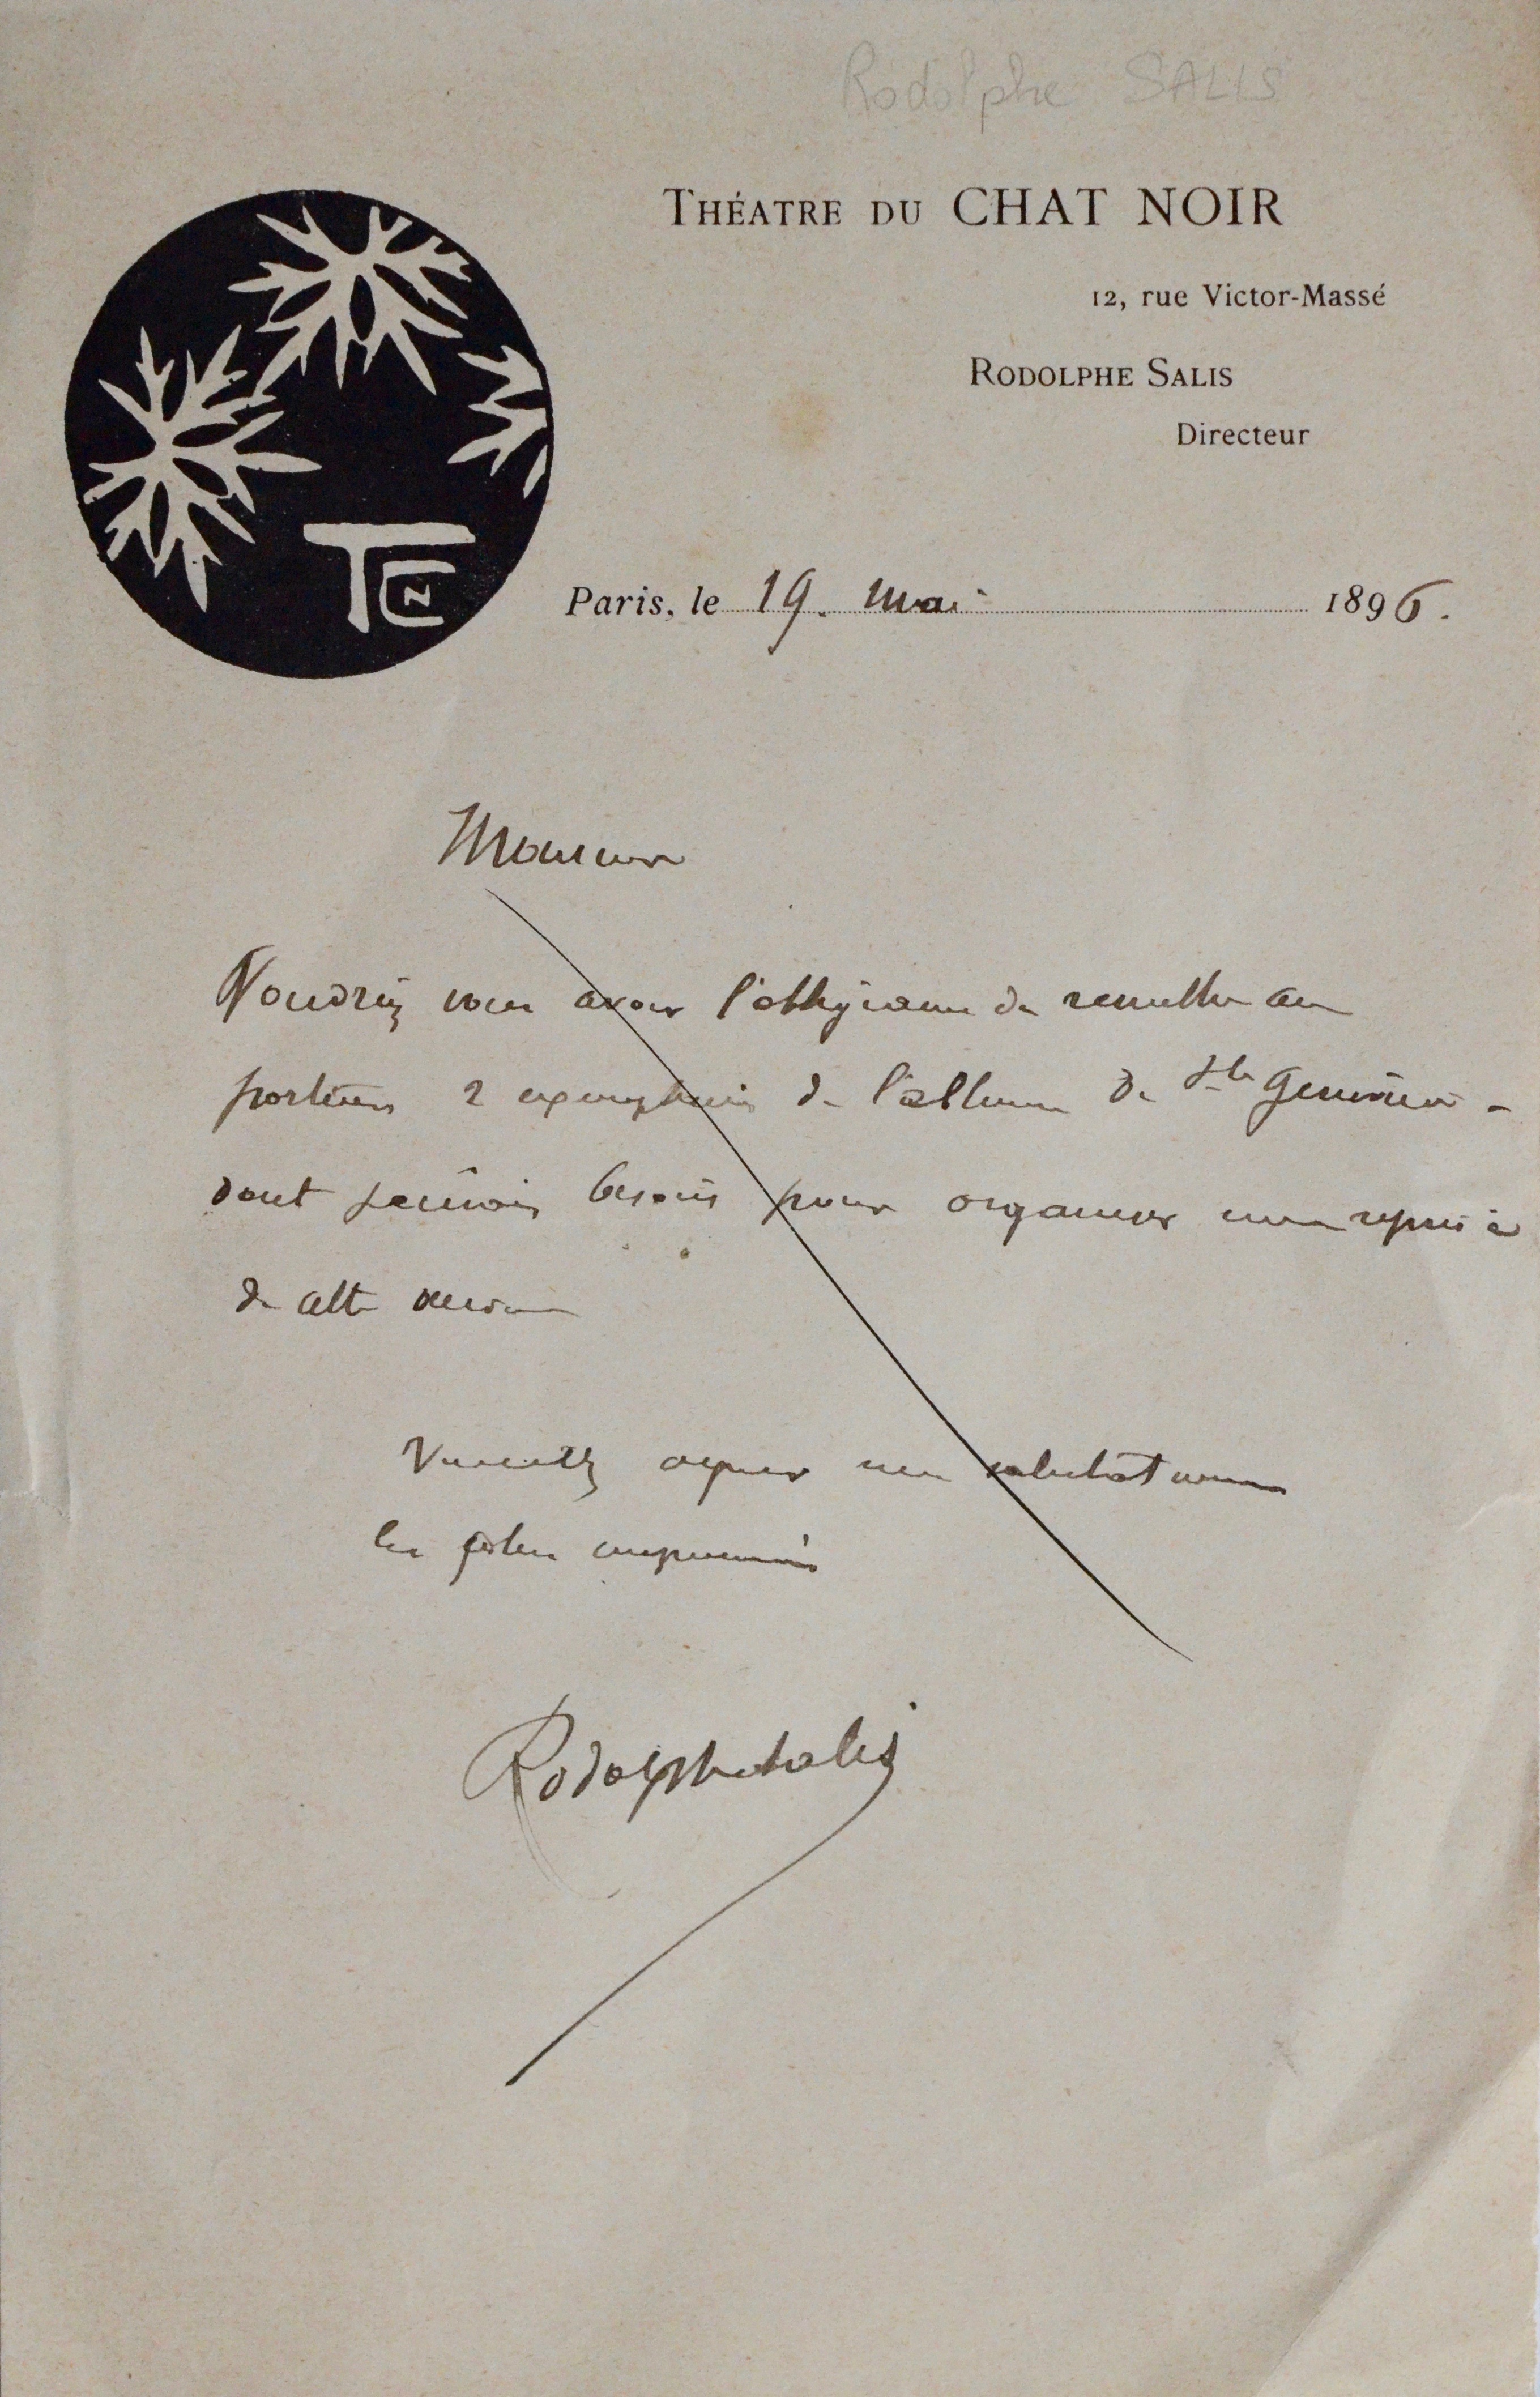 Rodolphe SALIS
THÉATRE DU CHAT NOIR
12, rue Victor-Massé
RODOLPHE SALIS
Directeur
TCN
Paris, le 19. mai 1896.
Monsieur
Voudriez vous avoir l'obligeance de remettre au
porteur 2 exemplaires de l'album de Ste Geneviève -
dont j'aurais besoin pour organiser une reprise
de cette
Veuillez agréer mes salutations
les plus empressées
Rodolphe Salis